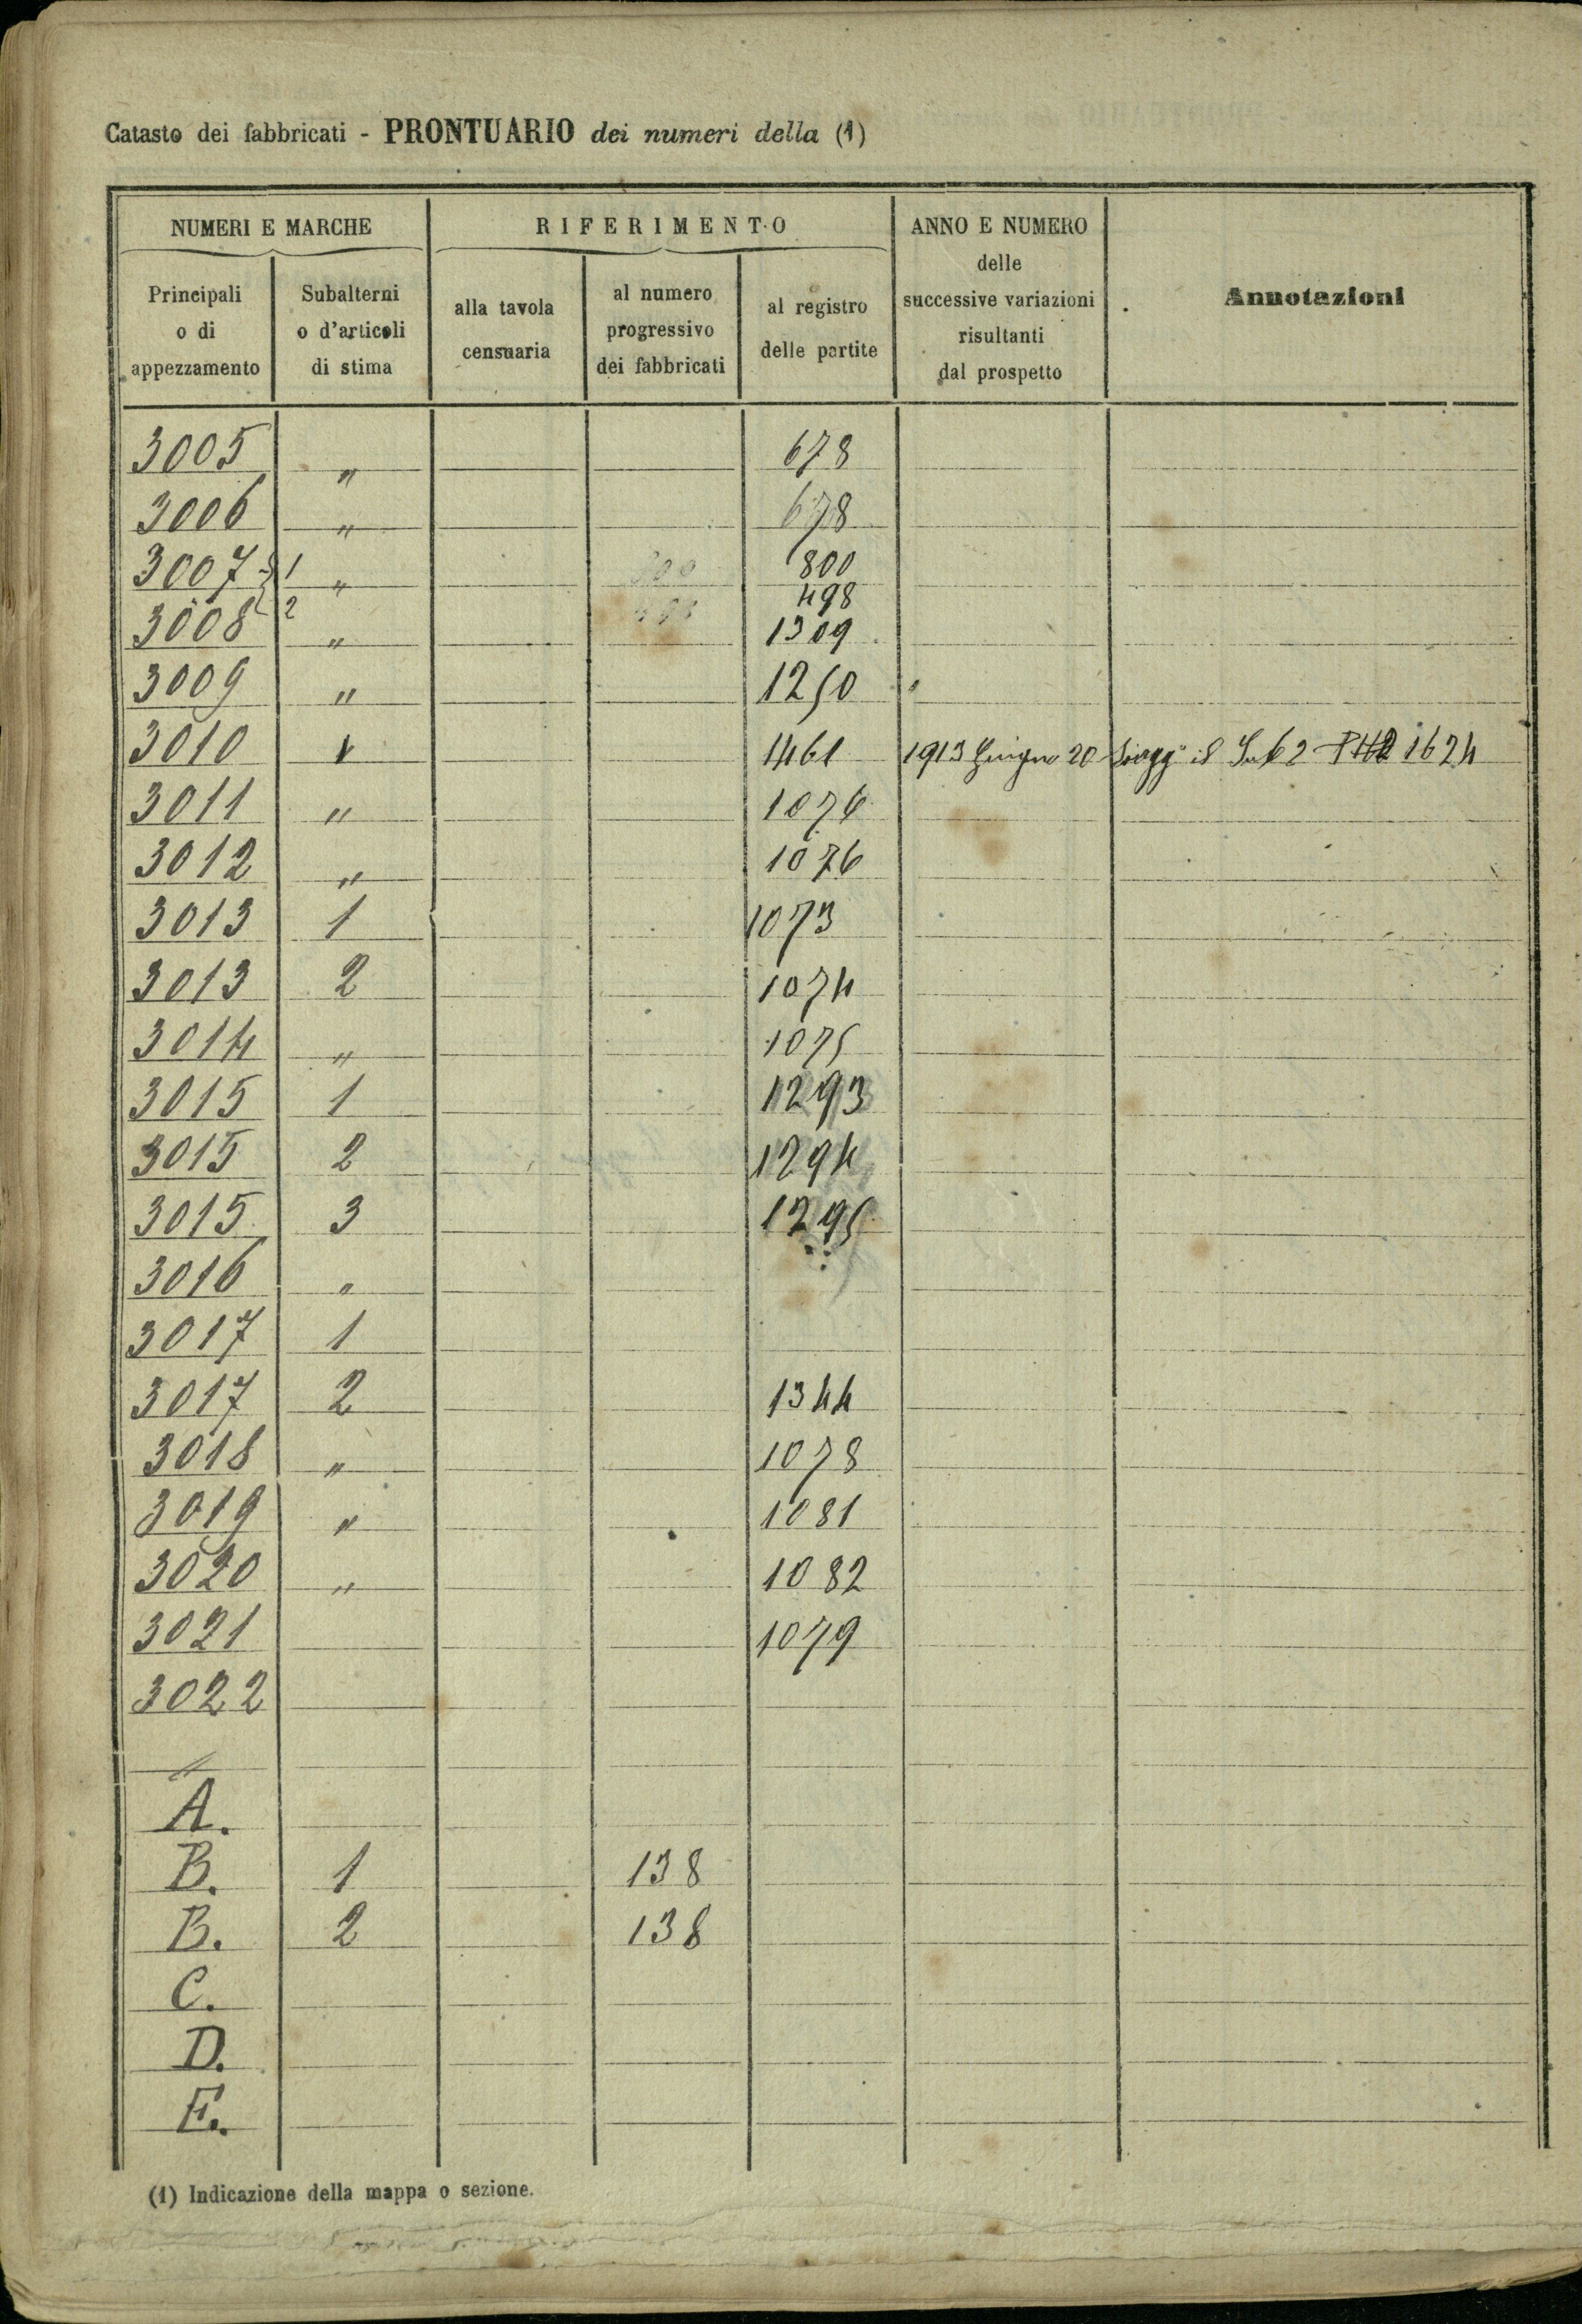 Catasto dei fabbricati - PRONTUARIO dei numeri della (1)
NUMERI E MARCHE
RIFERIMENTO
ANNO E NUMERO
delle
successive variazioni
risultanti
dal prospetto
Annotazioni
Principali
o di
appezzamento
Subalterni
o d'articoli
di stima
alla tavola
censuaria
al numero
progressivo
dei fabbricati
al registro
delle partite
3005 " 678
3006 " 678
3007 1 " 800
2 498
3008 " 1309
3009 " 1250
3010 1461 1913 Giugno 20 Sub 2 1624
3011 " 1076
3012 " 1076
3013 1 1073
3013 2 1074
3014 " 1075
3015 1 1293
3015 2 1294
3015 3 1295
3016 "
3017 1
3017 2 1344
3018 " 1078
3019 " 1081
3020 " 1082
3021 1079
3022
"
A.
B. 1 138
B. 2 138
C.
D.
E.
(1) Indicazione della mappa o sezione.